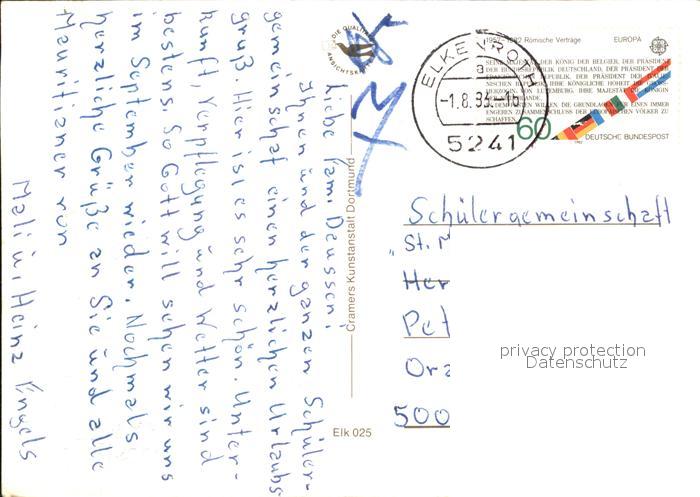 Liebe Fam. Deussen!
Ihnen und der ganzen Schüler-
gemeinschaft einen herzlichen Urlaubs
gruß. Hier ist es sehr schön. Unter-
kunft, Verpflegung und Wetter sind
bestens. So Gott will sehen wir uns
im September wieder. Nochmals
herzliche Grüße an Sie und alle
Mauritianer von
Malli u. Heinz Engels
DIE QUALITÄTS
ANSICHTSKARTE
Cramers Kunstanstalt Dortmund
Elk 025
ELKENROTH
a
-1.8.83.-16
5241
1957-1982 Römische Verträge
EUROPA
SEINE MAJESTÄT DER KÖNIG DER BELGIER, DER PRÄSIDENT
DER BUNDESREPUBLIK DEUTSCHLAND, DER PRÄSIDENT DER
FRANZÖSISCHEN REPUBLIK, DER PRÄSIDENT DER
IHRE KÖNIGLICHE HOHEIT DIE GROSS-
HERZOGIN VON LUXEMBURG, IHRE MAJESTÄT DIE KÖNIGIN
DER NIEDERLANDE,
WILLEN, DIE GRUNDLAGEN FÜR EINEN IMMER
ENGEREN ZUSAMMENSCHLUSS DER EUROPÄISCHEN VÖLKER ZU
SCHAFFEN
60
1982
DEUTSCHE BUNDESPOST
Schülergemeinschaft
"St. M
Her
Pet
Ora
500
privacy protection
Datenschutz